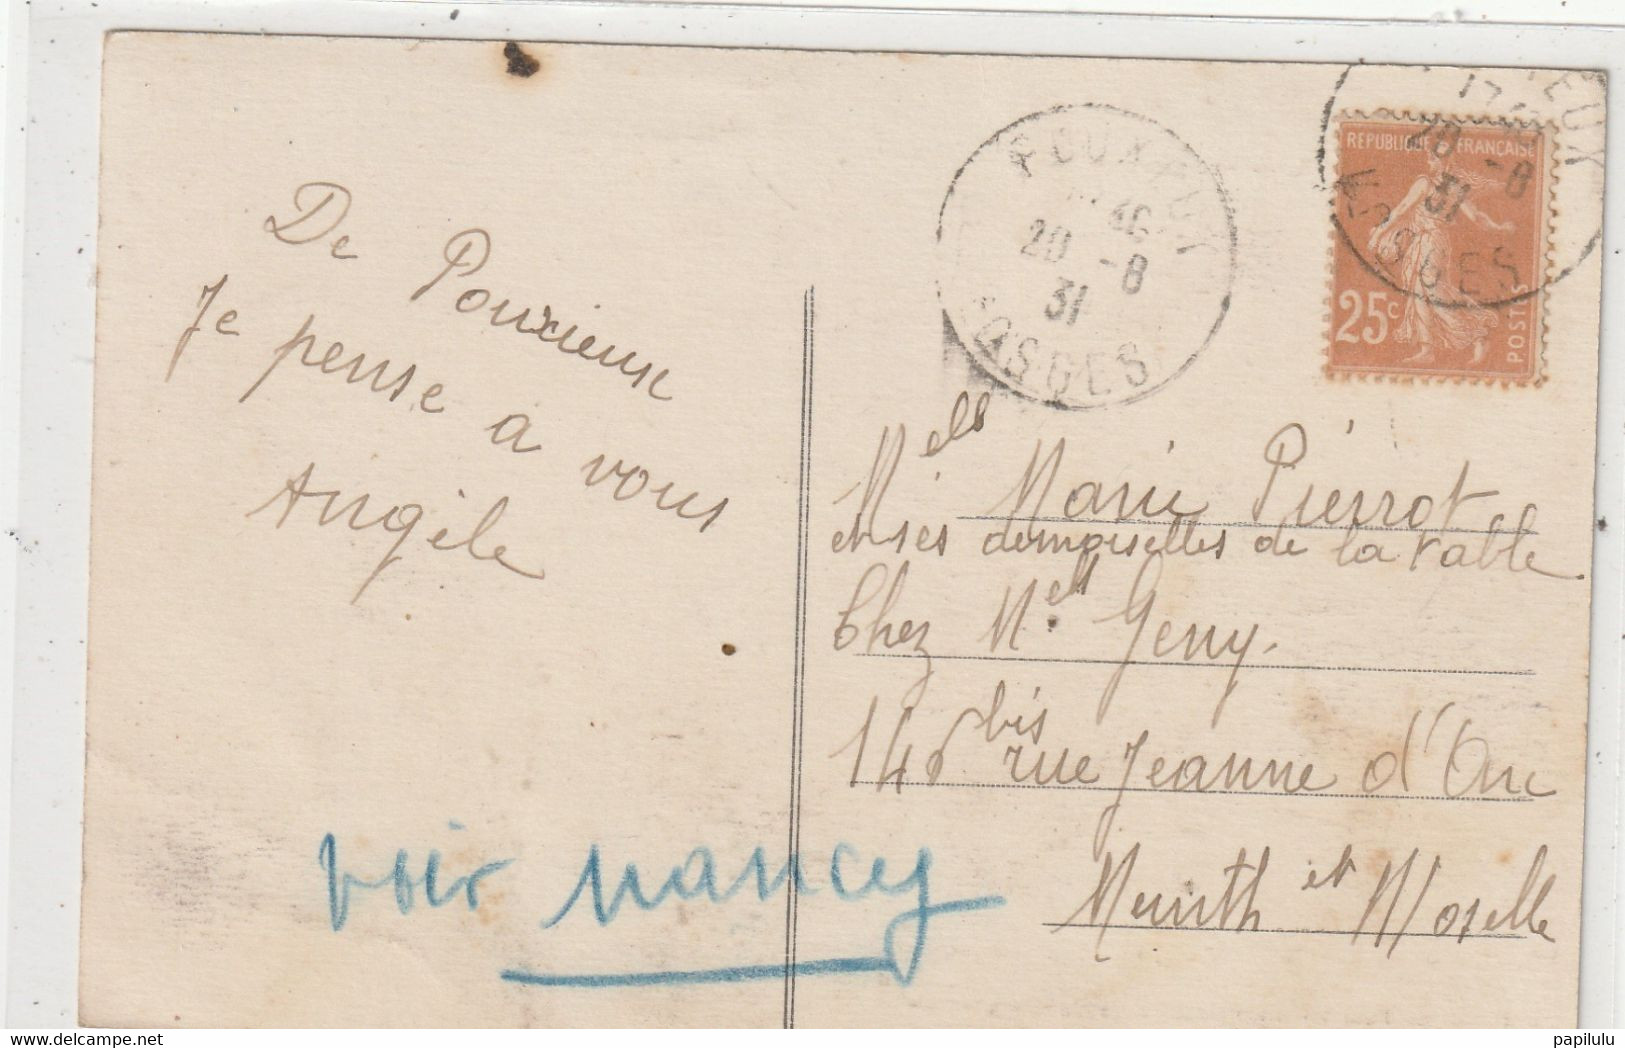 De Pouxieux
Je pense à vous
Angèle
POUXEUX
20 -8
31
VOSGES
EUX
20 -8
31
VOSGES
REPUBLIQUE FRANÇAISE
25c
POSTES
Melles Marie Pierrot
et ses demoiselles de la table
Chez Melle Geny.
bis
146 rue Jeanne d'Arc
Meurth et Moselle
voir nancy
www.delcampe.net
papilulu